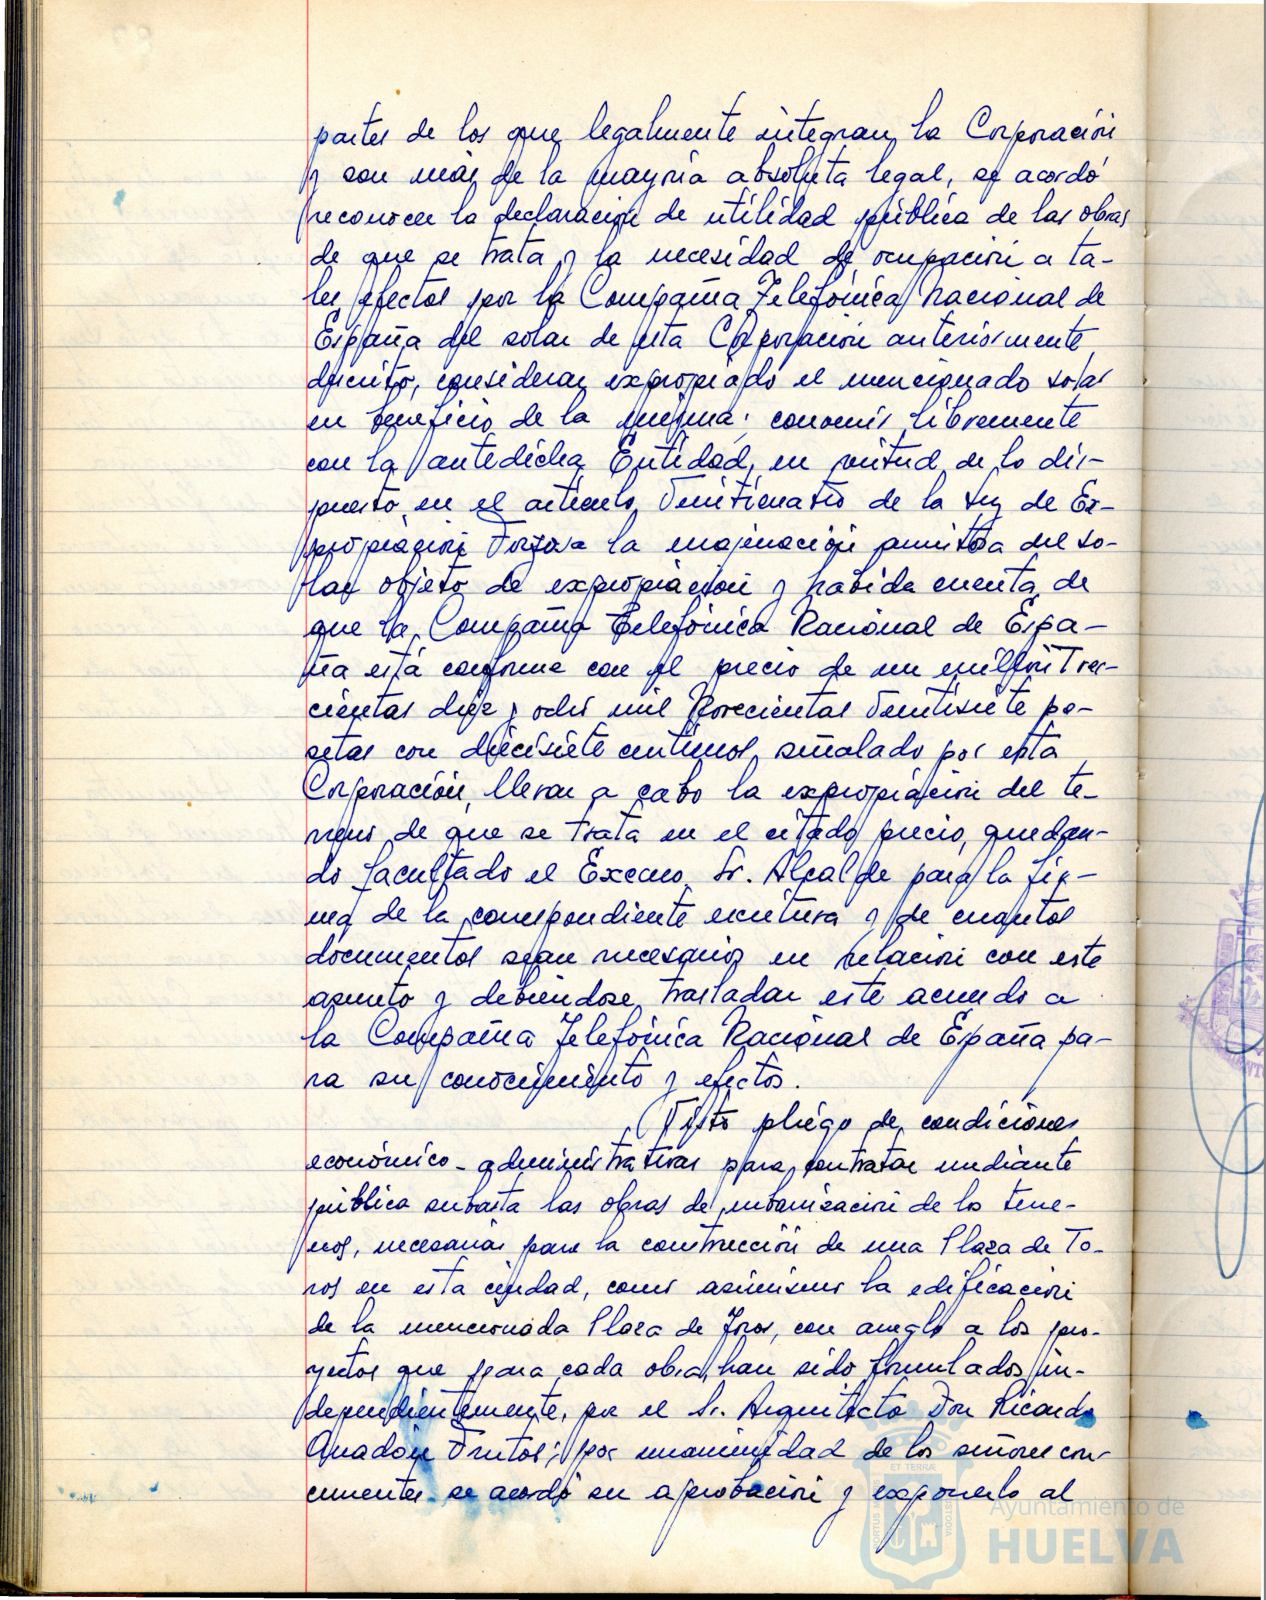 partes de los que legalmente integran la Corporación
y son más de la mayoría absoluta legal, se acordó
reconocer la declaración de utilidad pública de las obras
de que se trata y la necesidad de ocupación a ta-
les efectos por la Compañia Telefónica Nacional de
España del solar de esta Corporación anteriormente
descrito, considerar expropiado el mencionado solar
en beneficio de la misma; convenir libremente
con la antedicha Entidad, en virtud de lo dis-
puesto en el articulo Veinticuatro de la Ley de Ex-
propiación Forzosa la enajenación amistosa del so-
lar objeto de expropiación y habida cuenta de
que la Compañia Telefónica Nacional de Espa-
ña está conforme con el precio de un millón Tres-
cientas diez y ocho mil Novecientas Veintisiete pe-
setas con diecisiete centimos, señalado por esta
Corporación, llevar a cabo la expropiación del te-
rreno de que se trata en el citado precio, quedan-
do facultado el Excmo. Sr. Alcalde para la fir-
ma de la correspondiente escritura y de cuantos
documentos sean necesarios en relación con este
asunto y debiendose trasladar este acuerdo a
la Compañia Telefónica Nacional de España pa-
ra su conocimiento y efectos.
Visto pliego de condiciones
económico-administrativas para contratar mediante
pública subasta las obras de urbanización de los terre-
nos, necesarios para la construcción de una Plaza de To-
ros en esta ciudad, como asimismo la edificación
de la mencionada Plaza de Toros, con arreglo a los pro-
yectos que para cada obra han sido formulados in-
dependientemente, por el Sr. Arquitecto Don Ricardo
Anadón Frutos; por unanimidad de los señores con-
currentes se acordó su aprobación y exponerlo al
Ayuntamiento de
HUELVA